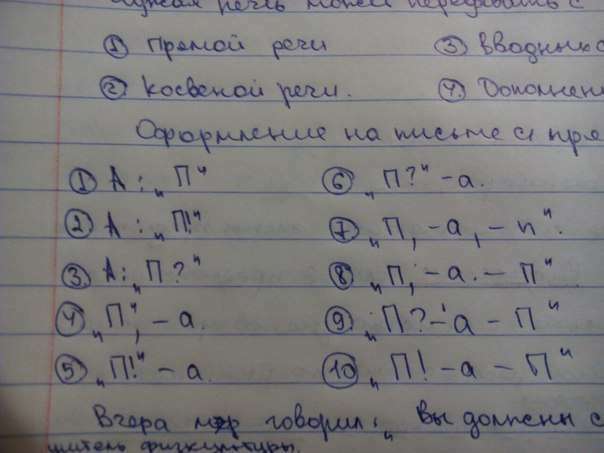 речь может передавать с
① прямой речи ③ вводных с
② косвеной речи. ④ Дополнен
Оформление на письме с пря
① А: „П“ ⑥ „П?“ – а.
② А: „П!“ ⑦ „П, – а, – п“.
③ А: „П?“ ⑧ „П, – а. – П“.
④ „П“, – а. ⑨ „П? – а – П“
⑤ „П!“ – а. ⑩ „П! – а – П“
Вчера говорил: „Вы должны с
учитель физкультуры.